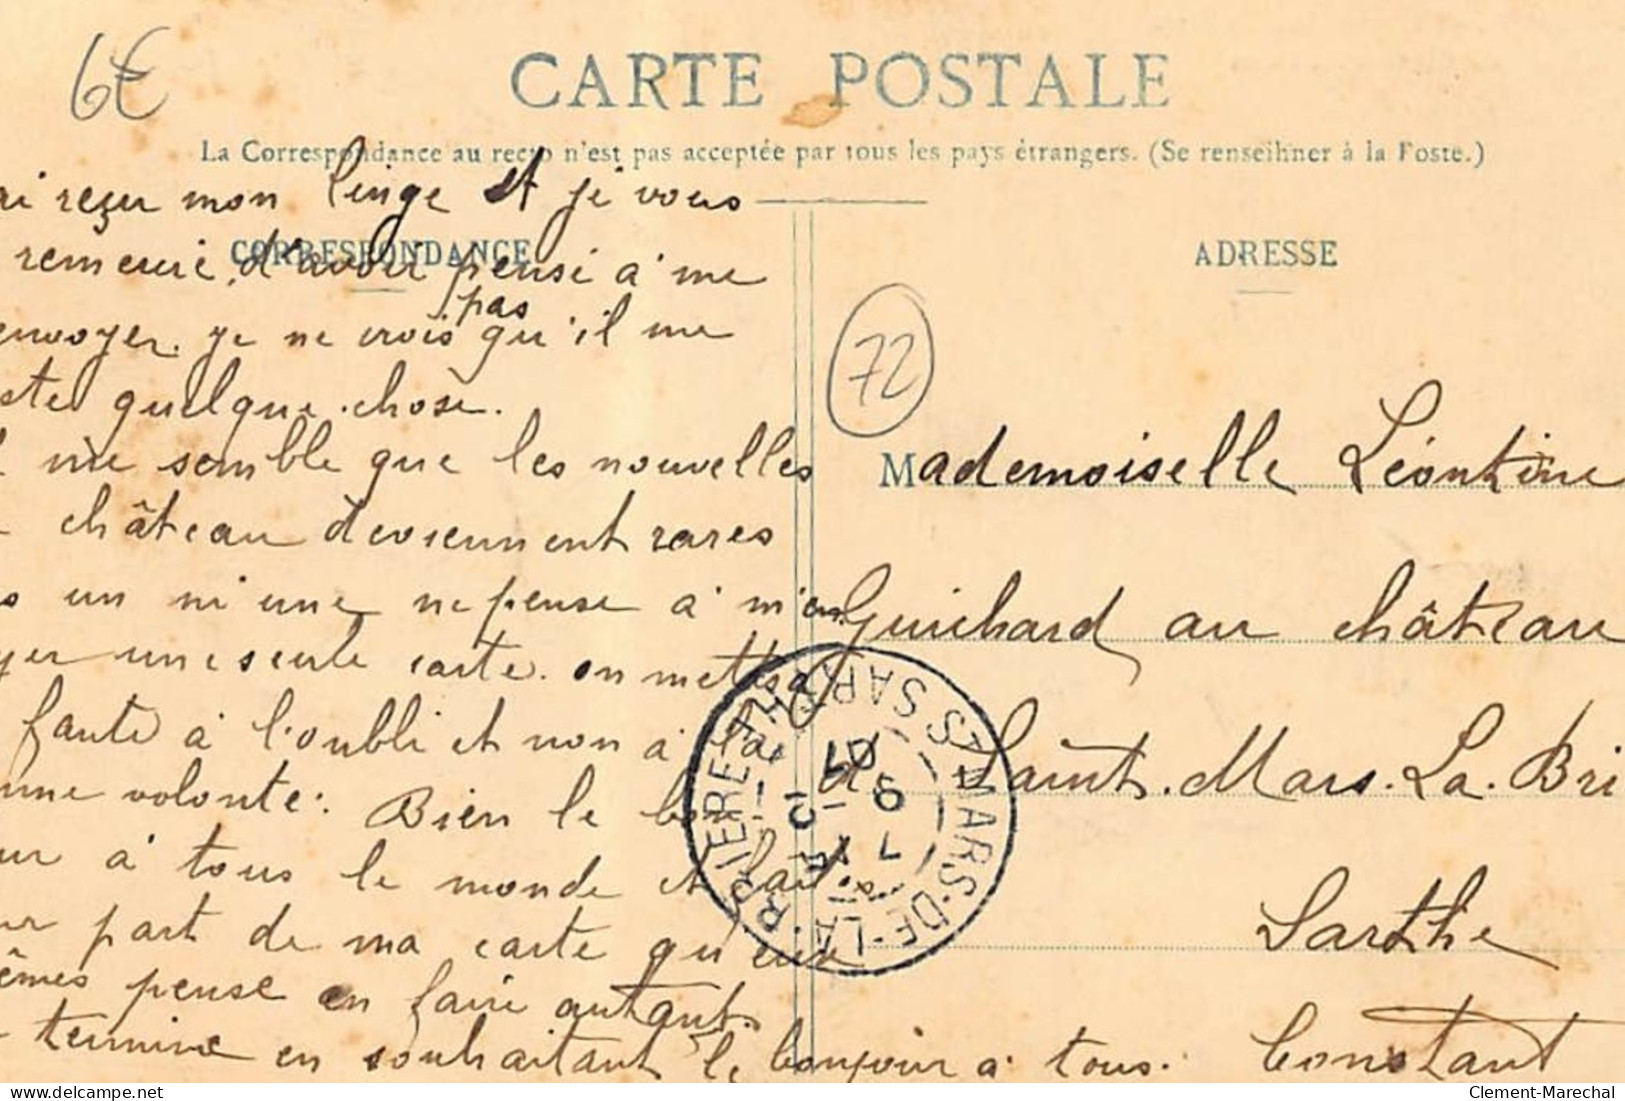 6€
CARTE POSTALE
La Correspondance au recto n'est pas acceptée par tous les pays étrangers. (Se renseihner à la Poste.)
CORRESPONDANCE
ri reçu mon linge et je vous
remercie, d'avoir pensé à me
envoyer. je ne crois pas qu'il me
ste quelque chose.
me semble que les nouvelles
château deviennent rares
s un ni une ne pense à m'en
yer une seule carte. on mettra
faute à l'oubli et non à la
nne volonté. Bien le bon
ur à tous le monde et fait
ur part de ma carte qu'eux
êmes pense en faire autant.
termine en souhaitant le bonjour à tous. Constant
ADRESSE
72
Mademoiselle Léontine
Guichard au château
Saint. Mars. La. Bri
Sarthe
ST MARS-DE-LA-BRIERE
SARTHE
7
9
07
Clement-Marechal